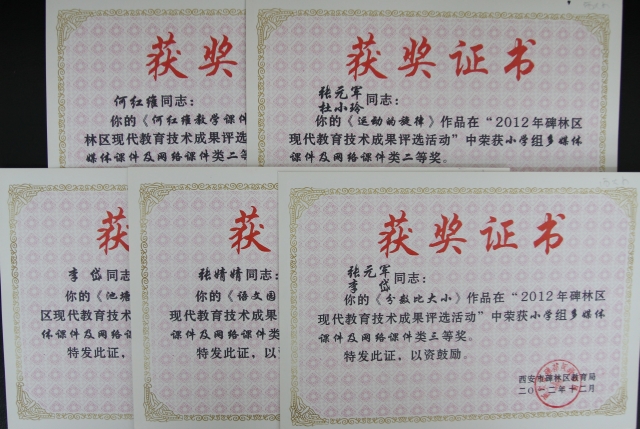 获奖
何红维同志：
你的《何红维教学课件
林区现代教育技术成果评选活动
媒体课件及网络课件类二等
获奖证书
张元军
杜小玲同志：
你的《运动的旋律》作品在“2012年碑林区
现代教育技术成果评选活动”中荣获小学组多媒体
课件及网络课件类二等奖。
获
李岱同志
你的《池塘
区现代教育技术成
体课件及网络课
特发此证，
获
张婧婧同志：
你的《语文园
现代教育技术成果
课件及网络课件类
特发此证，以资
获奖证书
张元军
李岱同志：
你的《分数比大小》作品在“2012年碑林区
现代教育技术成果评选活动”中荣获小学组多媒体
课件及网络课件类三等奖。
特发此证，以资鼓励。
西安市碑林区教育局
二〇一二年十二月